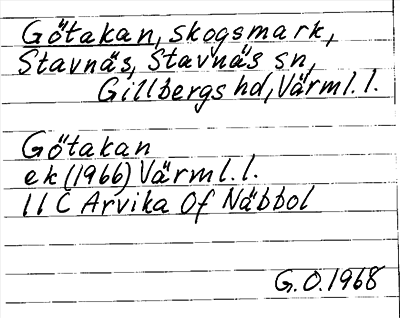 Götakan, skogsmark,
Stavnäs, Stavnäs sn,
Gillbergs hd, Värml. l.
Götakan
ek (1966) Värml. l.
11 C Arvika 0f Näbbol
G.O. 1968